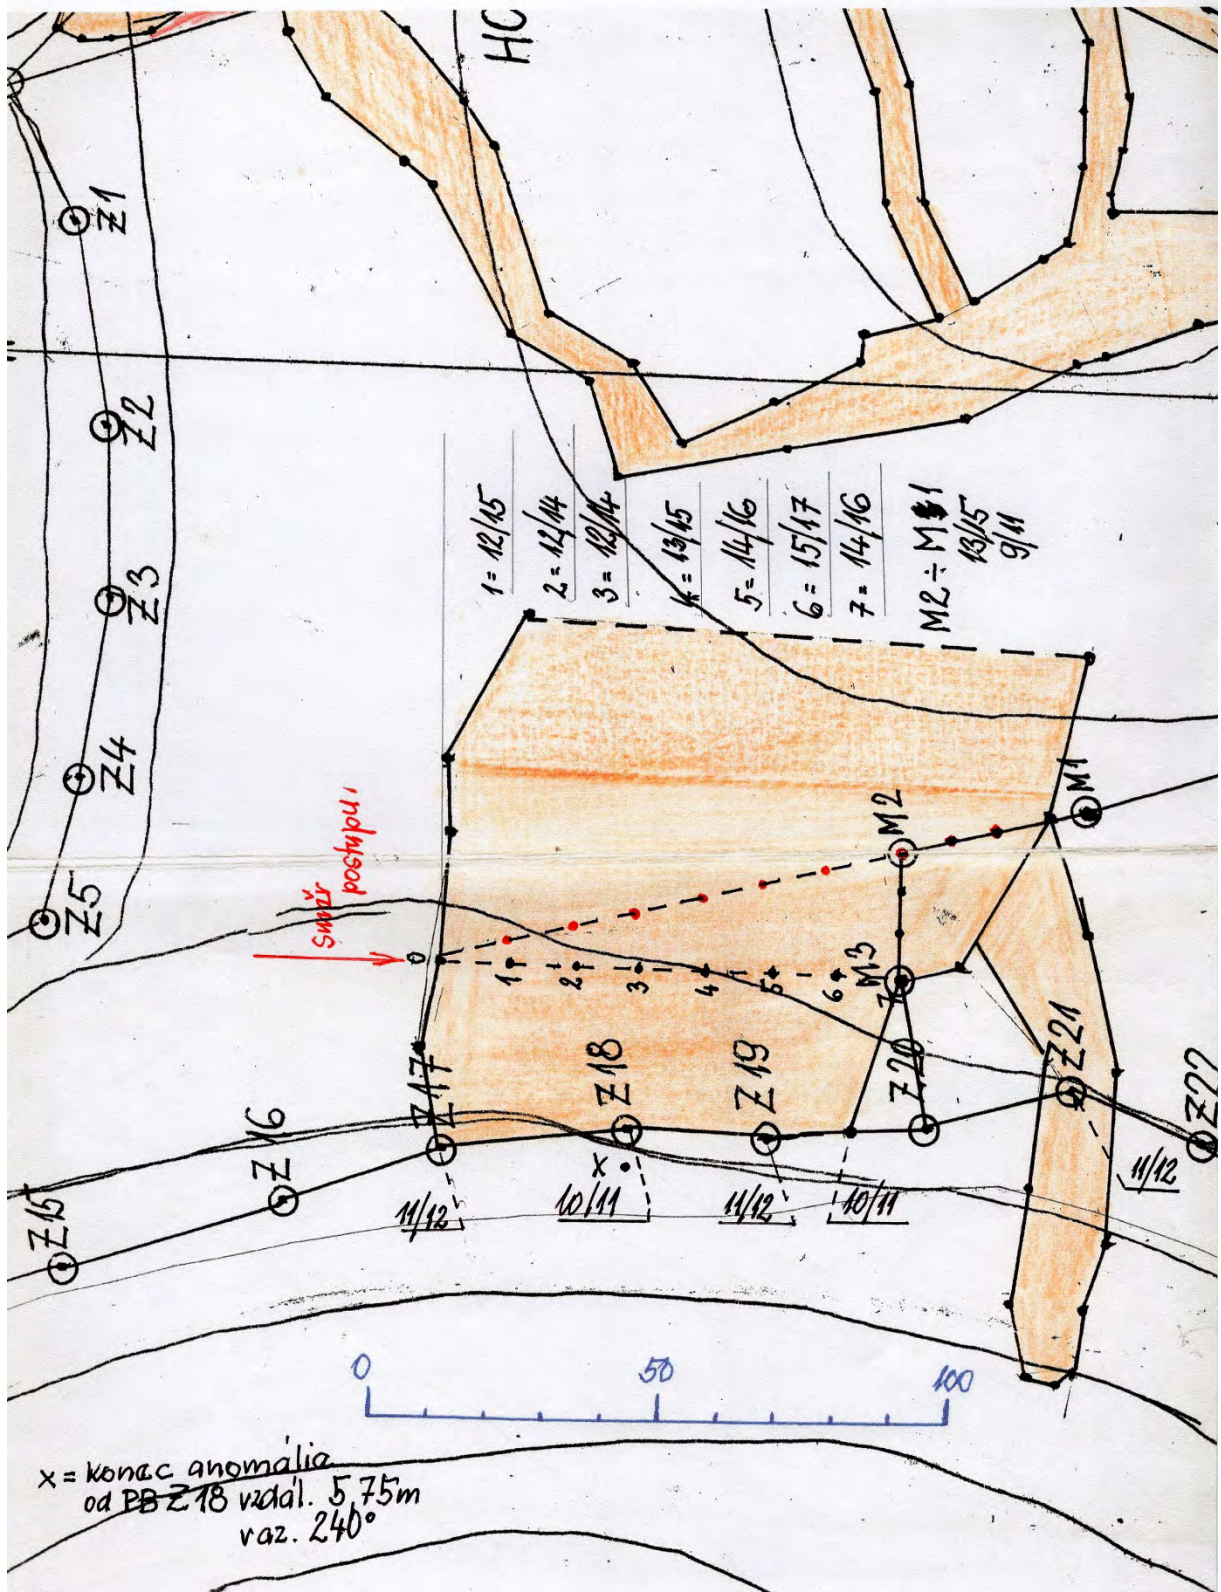 HC
Z1
Z2
Z3
Z4
Z5
1 = 12/15
2 = 12/14
3 = 12/14
4 = 13/15
5 = 14/16
6 = 15/17
7 = 14/16
M2 ÷ M1
13/15
9/11
Směr
postupu
0
1
2
3
4
5
6
7
M1
M2
M3
Z15
Z16
Z17
Z18
Z19
Z20
Z21
Z22
x
11/12
10/11
11/12
10/11
11/12
0
50
100
x = konec anomálie
od PB Z18 vzdál. 5,75m
v az. 240°